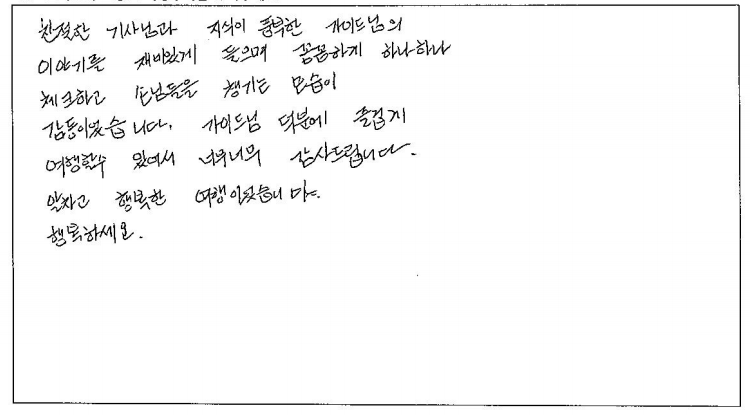 친절한 기사님과 지식이 풍부한 가이드님의
이야기를 재미있게 들으며 꼼꼼하게 하나하나
체크하고 손님들을 챙기는 모습이
감동이었습니다. 가이드님 덕분에 즐겁게
여행할수 있어서 너무너무 감사드립니다.
알차고 행복한 여행이었습니다.
행복하세요.